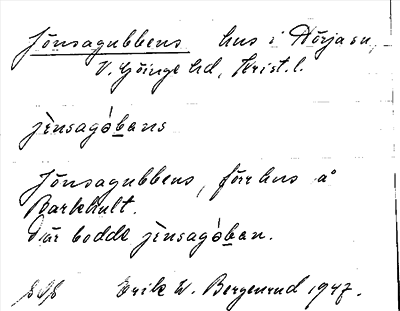 Jönsagubbens hus i Nörja sn,
V. Göinge hd, Krist. l.
jènsagòbans
Jönsagubbens, förr hus å
Barkhult.
Där bodde jènsagòban.
Erik W. Bergenrud 1947.